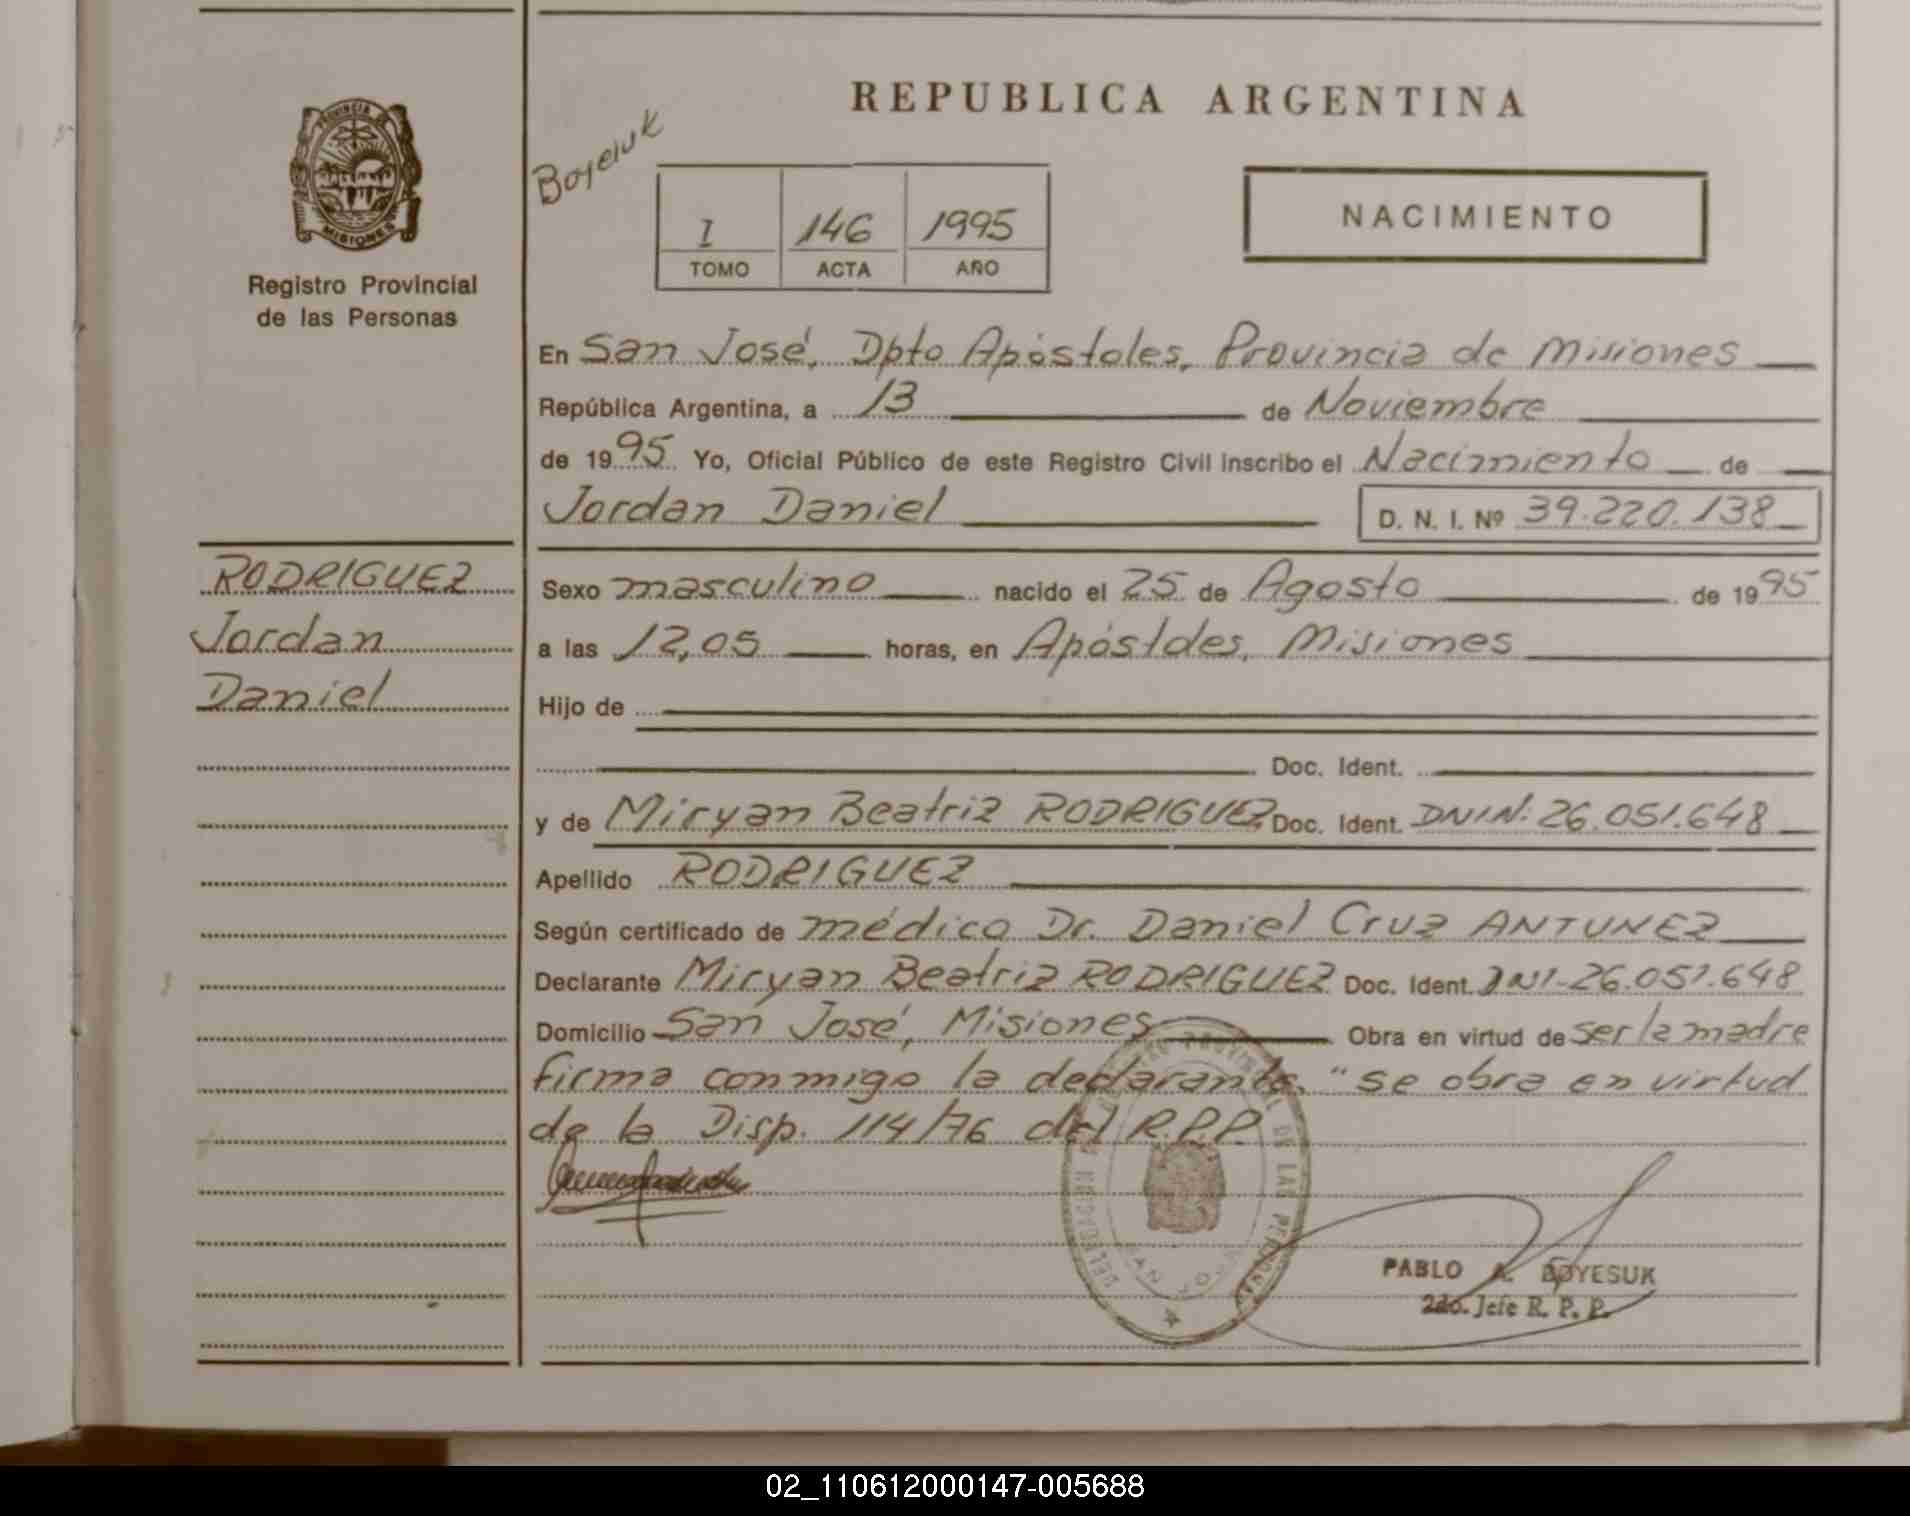 REPUBLICA ARGENTINA
PROVINCIA DE
MISIONES
Registro Provincial
de las Personas
I 146 1995
TOMO ACTA AÑO
NACIMIENTO
En San José, Dpto Apóstoles, Provincia de Misiones
República Argentina, a 13 de Noviembre
de 1995 Yo, Oficial Público de este Registro Civil inscribo el Nacimiento de
Jordan Daniel D. N. I. Nº 39.220.138
RODRIGUEZ
Jordan
Daniel
Sexo masculino nacido el 25 de Agosto de 1995
a las 12,05 horas, en Apóstoles, Misiones
Hijo de
Doc. Ident.
y de Miryan Beatriz RODRIGUEZ Doc. Ident. DNIN: 26.051.648
Apellido RODRIGUEZ
Según certificado de médico Dr. Daniel Cruz ANTUNEZ
Declarante Miryan Beatriz RODRIGUEZ Doc. Ident. DNI-26.051.648
Domicilio San José, Misiones Obra en virtud de ser la madre
firma conmigo la declarante. "se obra en virtud
de la Disp. 114/76 del R.P.P.
DELEGACION DE LAS PERSONAS
SAN JOSE
PABLO A. BOYESUK
2do. Jefe R. P. P.
02_110612000147-005688